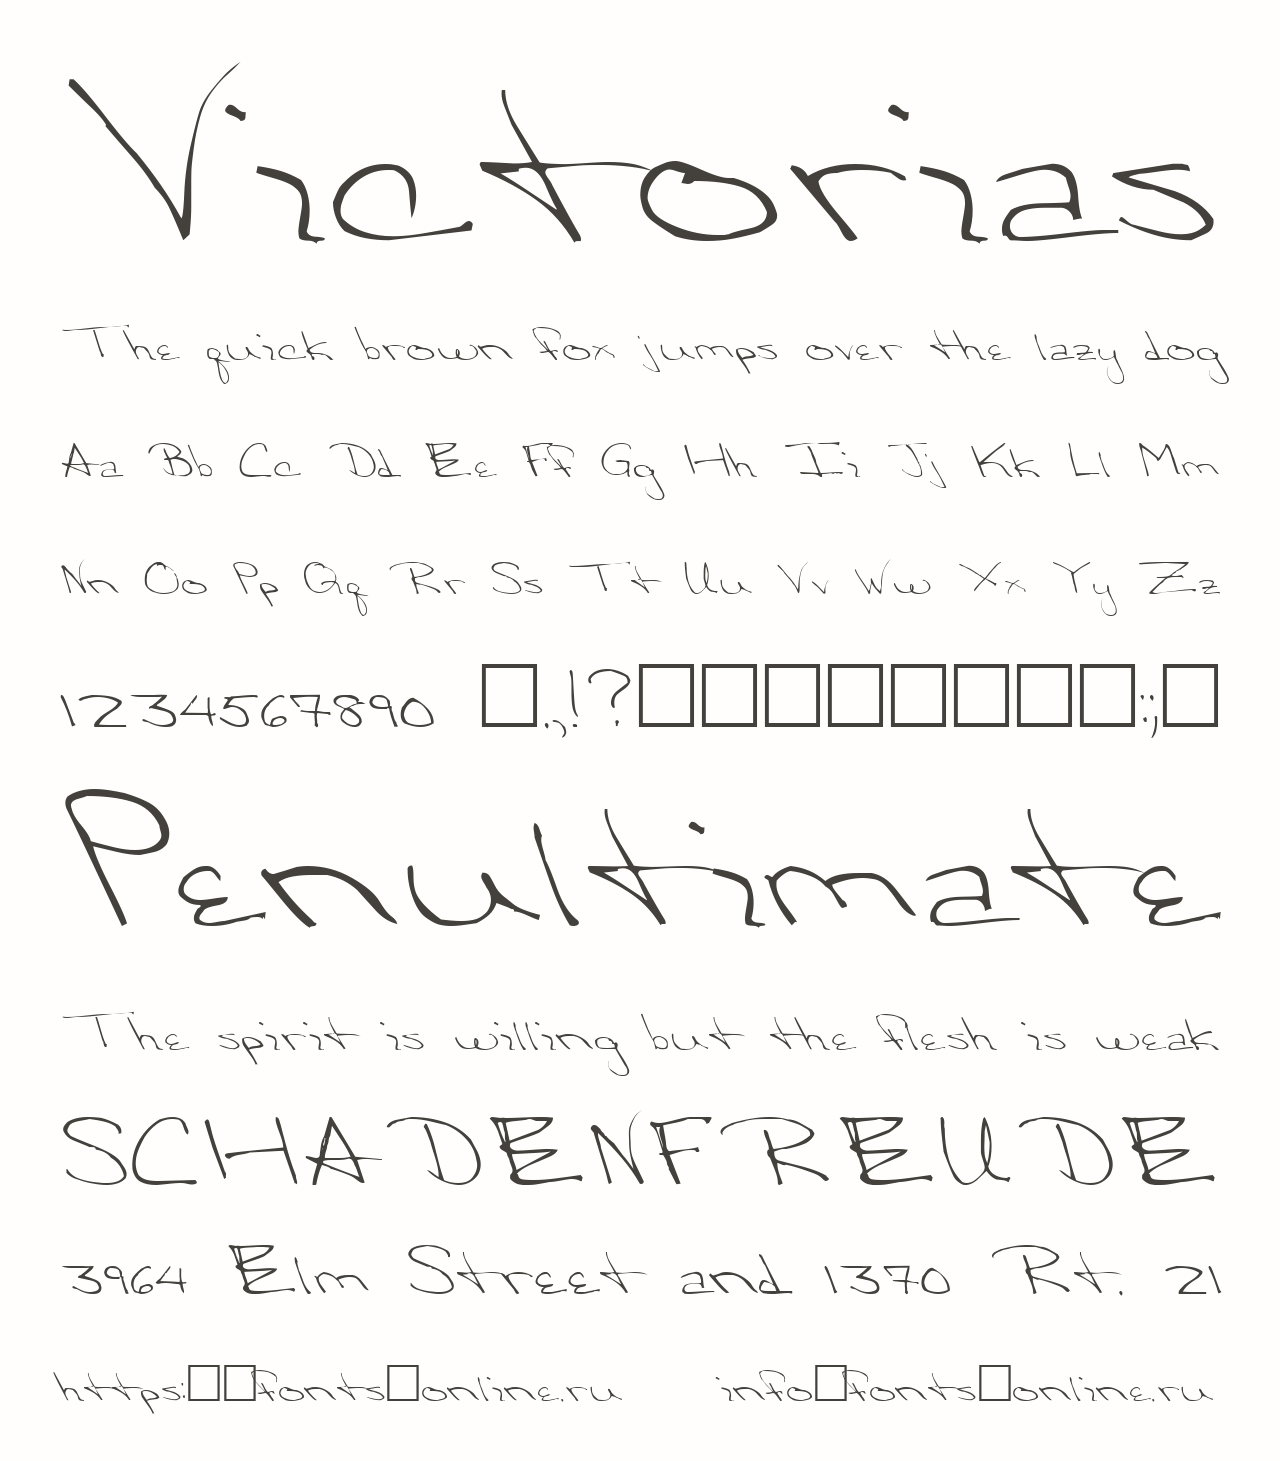 Victorias
The quick brown fox jumps over the lazy dog
Aa Bb Cc Dd Ee Ff Gg Hh Ii Jj Kk Ll Mm
Nn Oo Pp Qq Rr Ss Tt Uu Vv Ww Xx Yy Zz
1234567890 □.,!?□□□□□□□□:;□
Penultimate
The spirit is willing but the flesh is weak
SCHADENFREUDE
3964 Elm Street and 1370 Rt. 21
https:□□fonts□online.ru info□fonts□online.ru